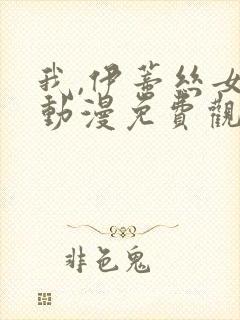 我,伊蒂丝女
動漫免費觀
非色鬼